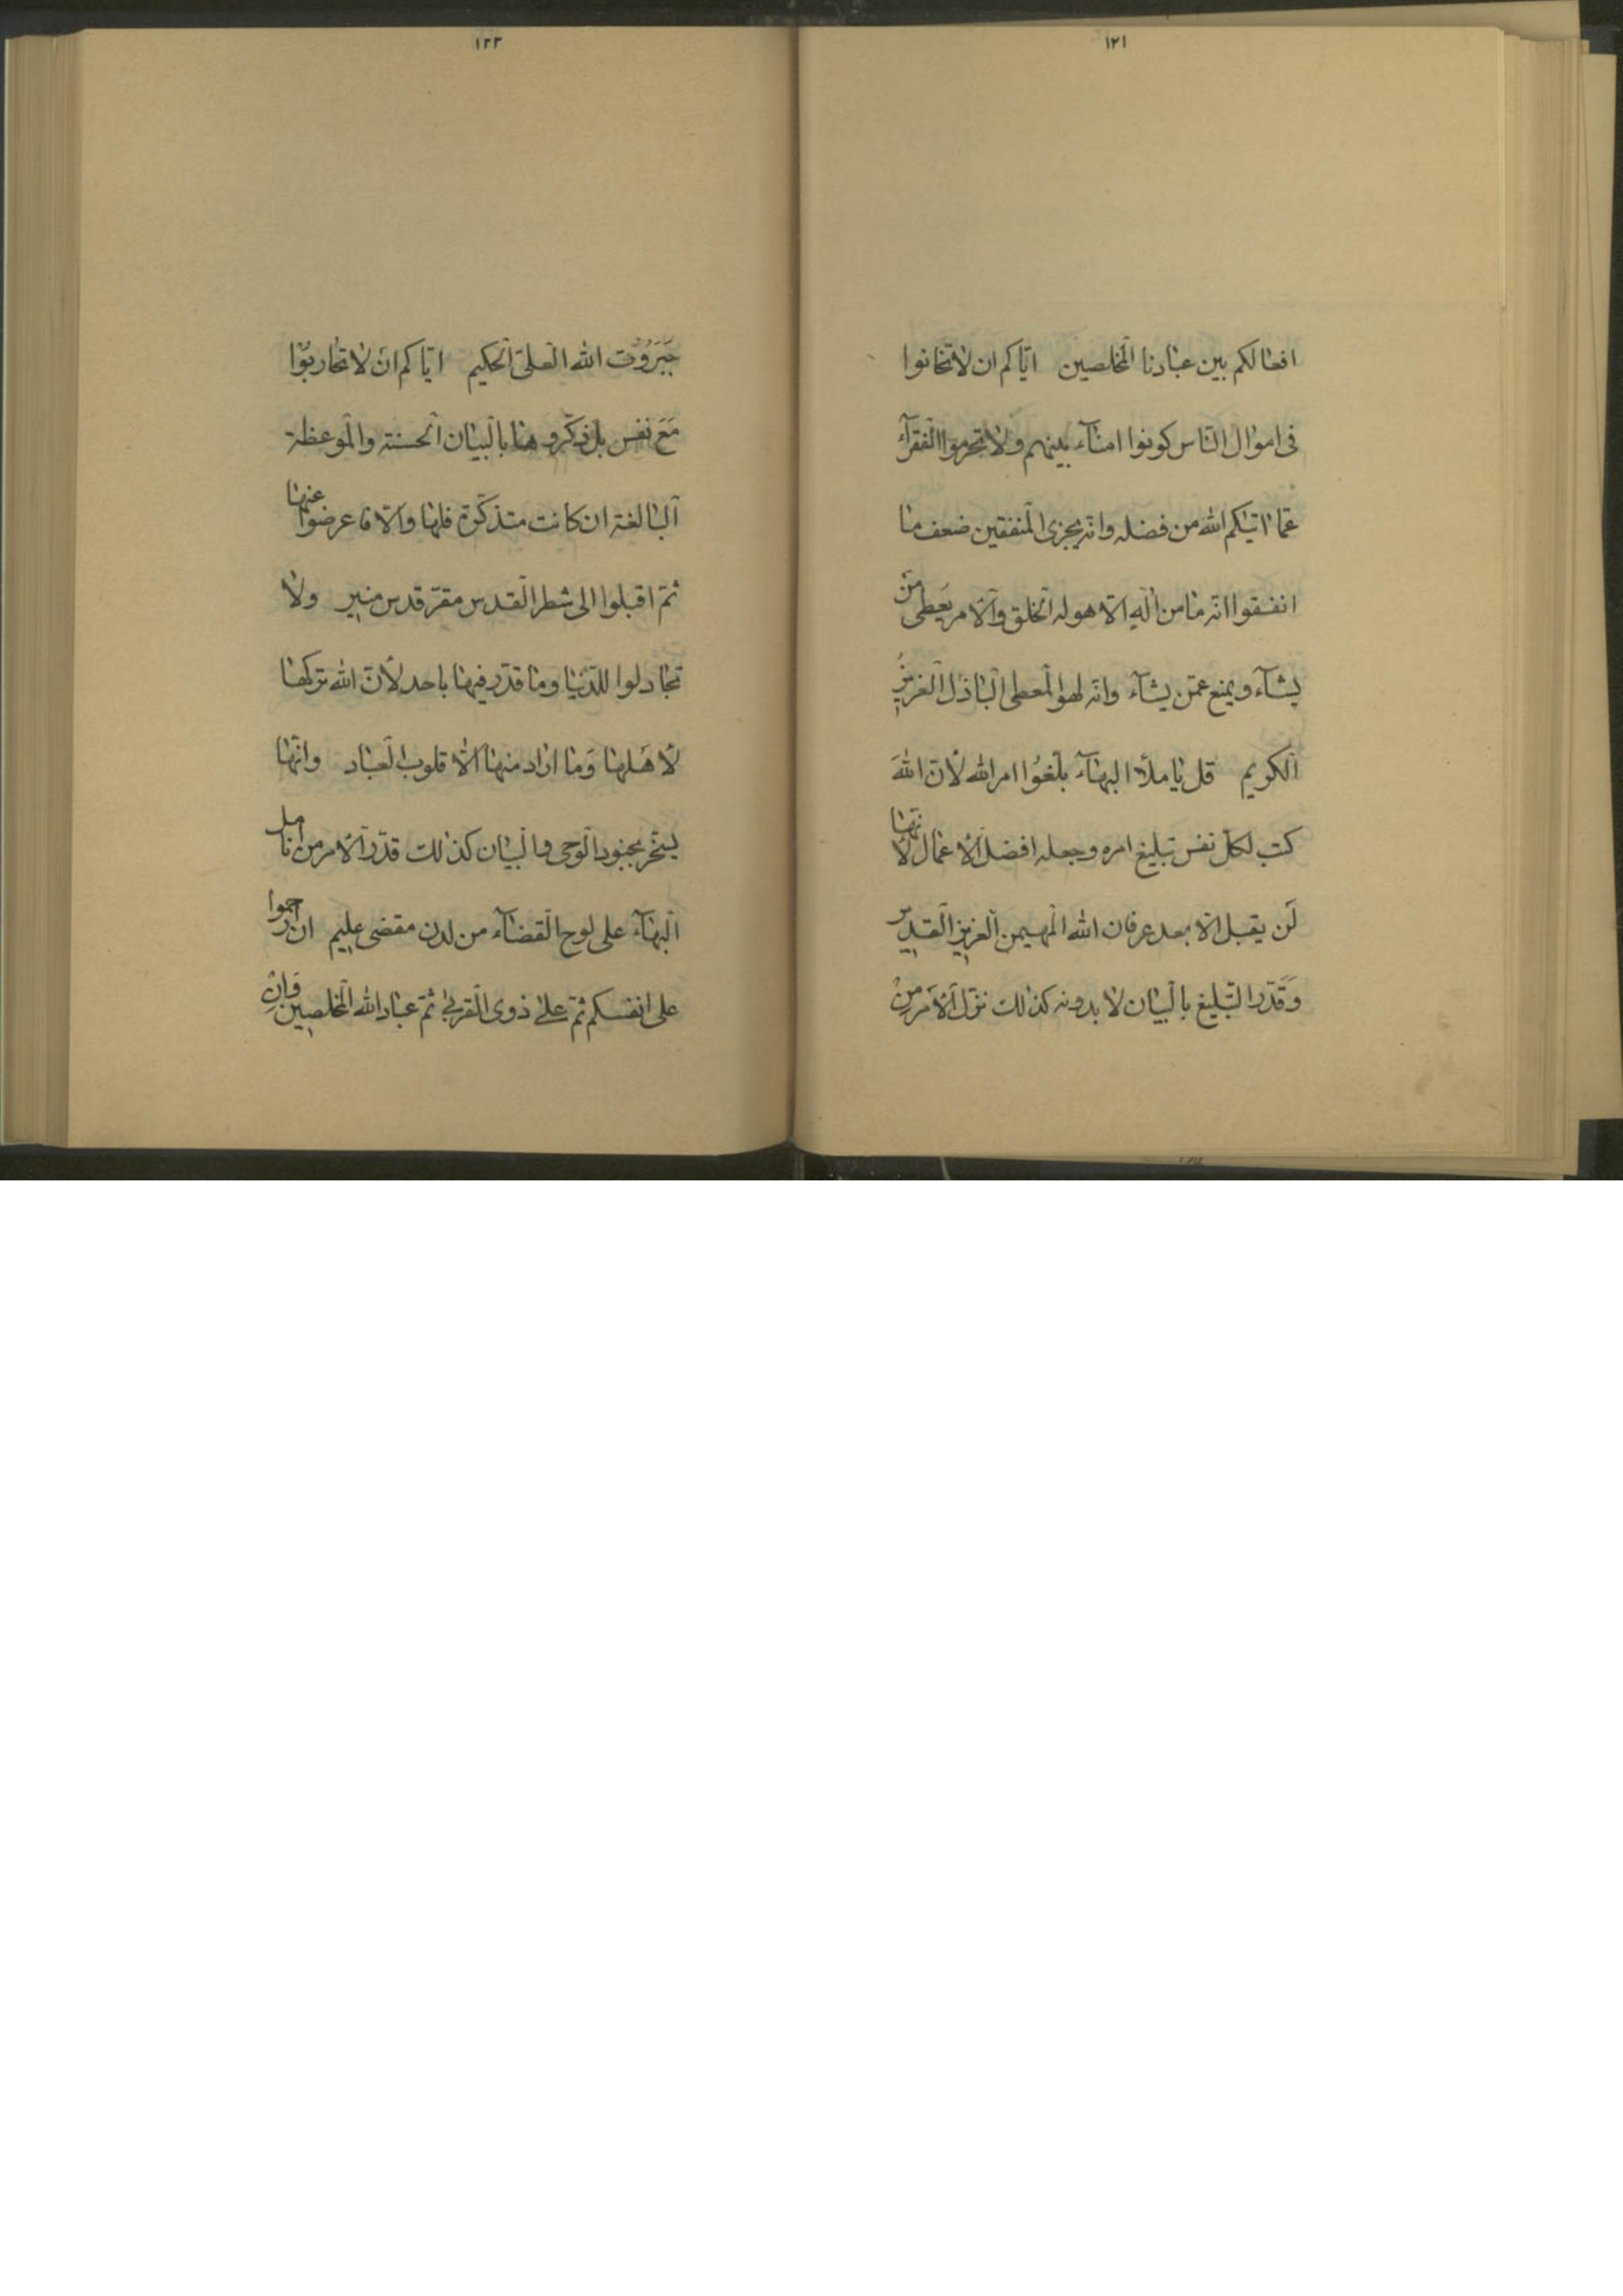 ١٢١
افعالكم بين عبادنا المخلصين اياكم ان لا تخانوا
فى اموال الناس كونوا امناء بينهم ولا تحرموا الفقرآء
عمّا اتيٰكم الله من فضله وانّه يجزى المنفقين ضعف ما
انفقوا انّه ما من الٰه الّا هو له الخلق والامر يعطى من
يشآء ويمنع عمّن يشآء وانّه لهو المعطى الباذل العزيز
الكريم قل يا ملأ البهآء بلّغوا امر الله لأنّ الله
كتب لكلّ نفس تبليغ امره وجعله افضل الأعمال لأنّها
لن يقبل الّا بعد عرفان الله المهيمن العزيز القدير
وقدّر التّبليغ بالبيان لا بدونه كذلك نزّل الأمر من
١٢٢
جبروت الله العلىّ الحكيم ايّاكم ان لا تحاربوا
مع نفس بل ذكّروها بالبيان الحسنة والموعظة
البالغة ان كانت متذكّرة فلها والّا فاعرضوا عنها
ثمّ اقبلوا الى شطر القدس مقرّ قدس منير ولا
تجادلوا للدّنيا وما قدّر فيها باحد لأنّ الله تركها
لأهلها وما اراد منها الّا قلوب العباد وانّها
يسخّر بجنود الوحى والبيان كذلك قدّر الأمر من انامل
البهآء على لوح القضآء من لدن مقضى عليم ان ارحموا
على انفسكم ثمّ على ذوى القربى ثمّ عباد الله المخلصين وان